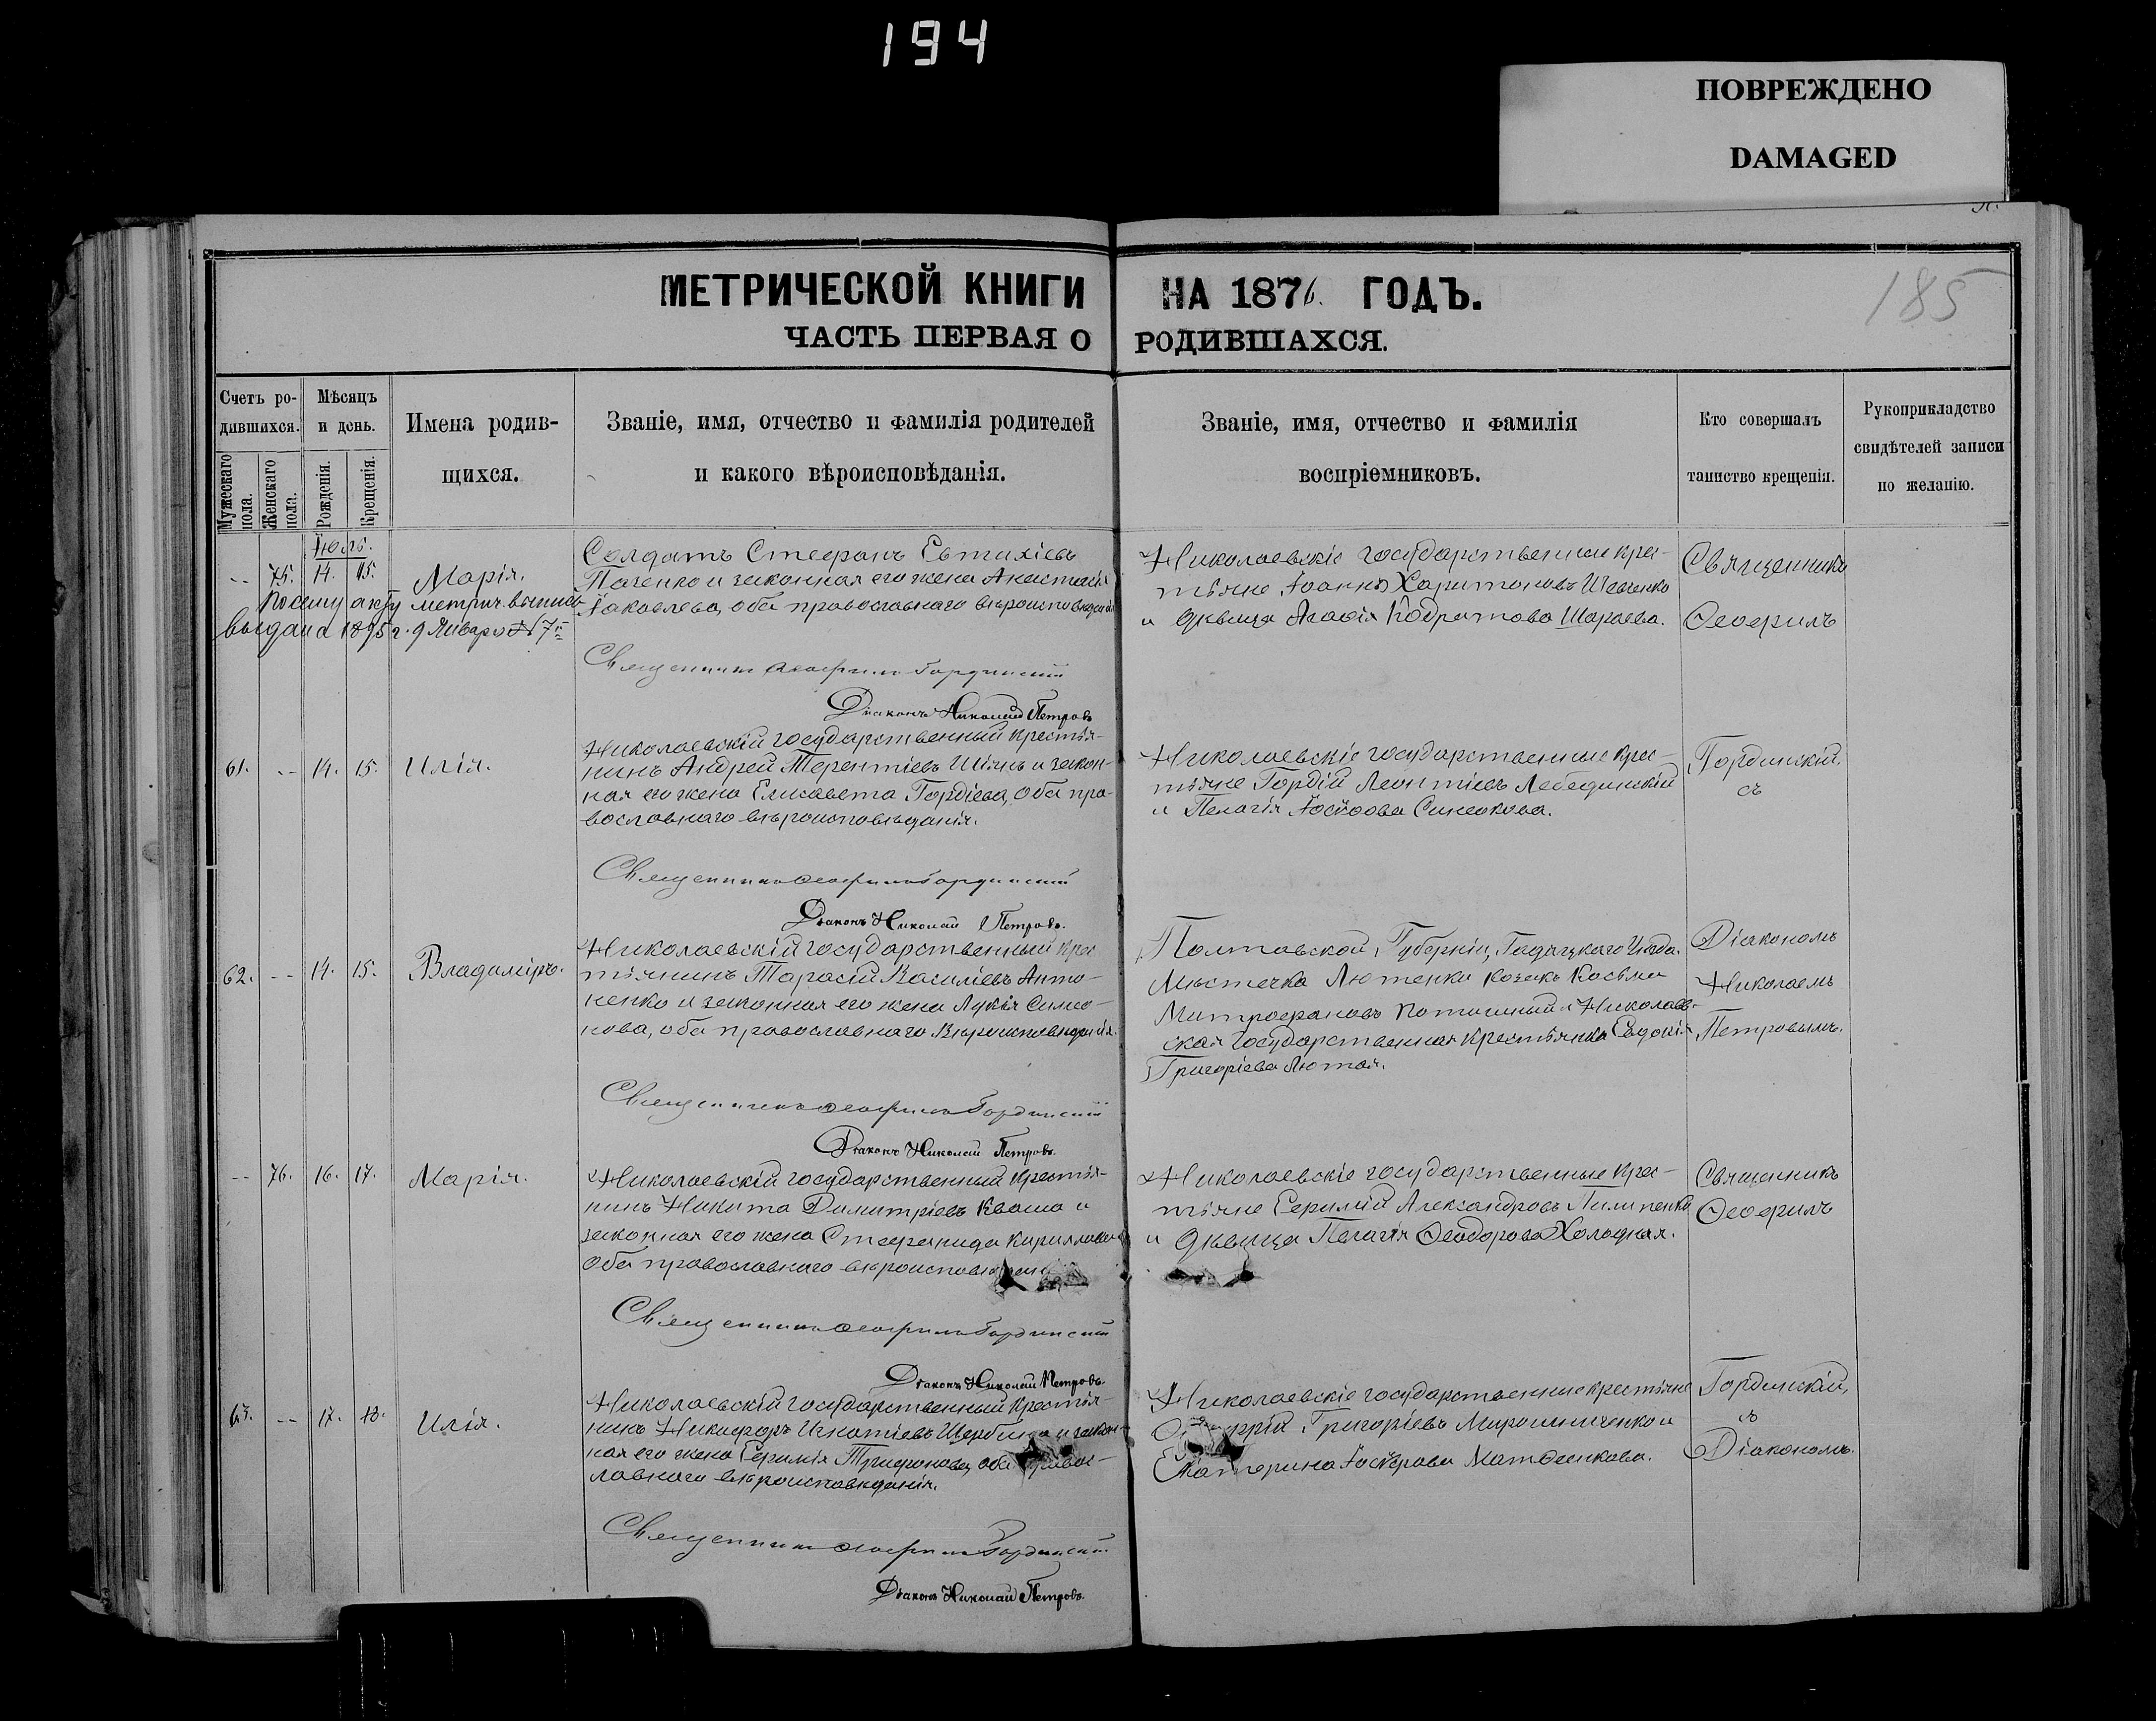 194
ПОВРЕЖДЕНО
DAMAGED
МЕТРИЧЕСКОЙ КНИГИ НА 1876. ГОДЪ.
185
ЧАСТЬ ПЕРВАЯ О РОДИВШАХСЯ.
Счетъ ро-
дившихся.
Мужескаго пола.
Женскаго пола.
Мѣсяцъ
и день.
Рожденія.
Крещенія.
Имена родив-
щихся.
Званіе, имя, отчество и фамилія родителей
и какого вѣроисповѣданія.
Званіе, имя, отчество и фамилія
воспріемниковъ.
Кто совершалъ
таинство крещенія.
Рукоприкладство
свидѣтелей записи
по желанію.
Іюль.
-- 75. 14. 15. Марія.
Посему акту метрич. выпись
выдана 1895 г. 9 Января № 7
Солдатъ Стефанъ Евтихіевъ
и законная его жена Анастасія
Іаковлева, оба православнаго вѣроисповѣданія
Священникъ Ѳеофилъ Гординскій
Діаконъ Николай Петровъ
Николаевскіе государственные крес-
тьяне Іоаннъ Харитоновъ Шевченко
и дѣвица Агафія Кодратова
Священникъ
Ѳеофилъ
61. -- 14. 15. Илія.
Николаевскій государственный крестья-
нинъ Андрей Терентіевъ и закон-
ная его жена Елисавета Гордіева, оба пра-
вославнаго вѣроисповѣданія.
Священникъ Ѳеофилъ Гординскій
Діаконъ Николай Петровъ.
Николаевскіе государственные крес-
тьяне Гордій Леонтіевъ Лебединскій
и Пелагія Іосифова Синеокова.
Гординскій
съ
62. -- 14. 15. Владиміръ.
Николаевскій государственный крес
тьянинъ Тарасій Василіевъ Анто-
ненко и законная его жена Лукія Симео-
нова, оба православнаго вѣроисповѣданія.
Священникъ Ѳеофилъ Гординскій
Діаконъ Николай Петровъ.
Полтавской Губерніи, Гадячскаго Уѣзда
Мѣстечка Лютенки козакъ Косьма
Митрофановъ и Николаев-
ская государственная крестьянка Евдокія
Григоріева Лютая.
Діакономъ
Николаемъ
Петровымъ.
-- 76. 16. 17. Марія.
Николаевскій государственный крестья-
нинъ Никита Димитріевъ Кваша и
законная его жена Стефанида Кириллова
Оба православнаго
Священникъ Ѳеофилъ Гординскій
Діаконъ Николай Петровъ.
Николаевскіе государственные крес-
тьяне Александровъ Пилипенко
и дѣвица Пелагія Ѳеодорова Холодная.
Священникъ
Ѳеофилъ
63. -- 17. 18. Илія.
Николаевскій государственный крестья-
нинъ Никифоръ Игнатіевъ Щербина и закон-
ная его жена Трифонова, оба правос-
лавнаго вѣроисповѣданія.
Священникъ Ѳеофилъ Гординскій
Діаконъ Николай Петровъ.
Николаевскіе государственные крестьяне
Григоріевъ Мирошниченко и
Екатерина Іосифова
Гординскій,
съ
Діакономъ.